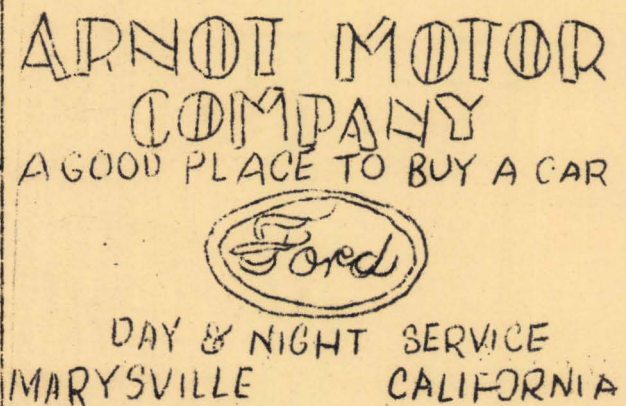 ARNOT MOTOR
COMPANY
A GOOD PLACE TO BUY A CAR
Ford
DAY & NIGHT SERVICE
MARYSVILLE CALIFORNIA